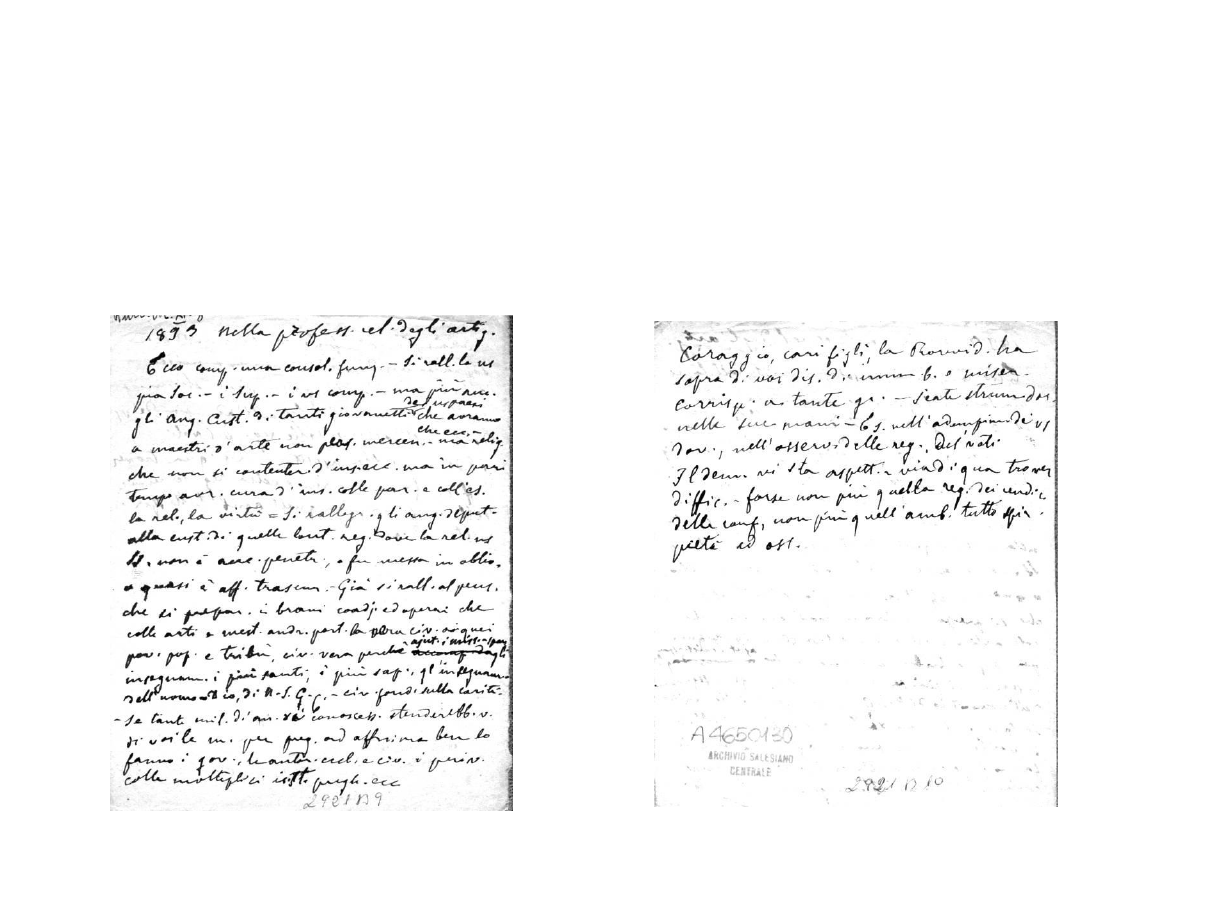 1893 Nella profess. rel. degli artig.
Ecco comp. una consol. funz. – Si rall. la ns
pia Soc. – i Sup. – i vs comp. – ma più anc.
gli Ang. Cust. di tanti giovanetti che avranno
a maestri d'arte non plas. mercen. – ma relig
che non si contenter. d'ins. ecc. ma in pari
tempo avr. cura d'ins. colle par. e coll'es.
la rel., la virtù = Si rallegr. gli ang. deput.
alla cust. di quelle lont. reg. dove la rel. ns
SS. non è anc. penetr., o fu messa in oblio,
o quasi è aff. trascur. – Già si rall. al pens.
che si prepar. i bravi coadj. ed operai che
colle arti e mest. andr. port. la vera civ. a quei
pov. pop. e tribù, civ. vera perchè
ajut. i miss. spar
insegnam. i più santi, i più sap., gl'insegnam.
dell'uomo Dio, di N. S. G. C. – civ. fond. sulla carità.
– Se tant. mil. d'an. vi conoscess. stenderebb. v.
di voi le m. per preg. ad affrima ben lo
fanno i gov., le autor. eccl. e civ. i priv.
colle moltiplici istt. pregh. ecc
292 1 B 9
Coraggio, cari figli, la Provvid. ha
sopra di voi dis. di imm. b. e miser.
corrisp. a tante gr. – Siate strum. doc.
nelle sue mani – Es. nell'adempim. dei vs
dov., nell'osserv. delle reg. del voti
Il dem. vi sta aspett. – via di qua trover
diffic. – forse non più quella reg. dei rendic.
delle conf., non più quell'amb. tutto spir.
pietà ed oss.
A4650130
ARCHIVIO SALESIANO
CENTRALE
292 1 B 10